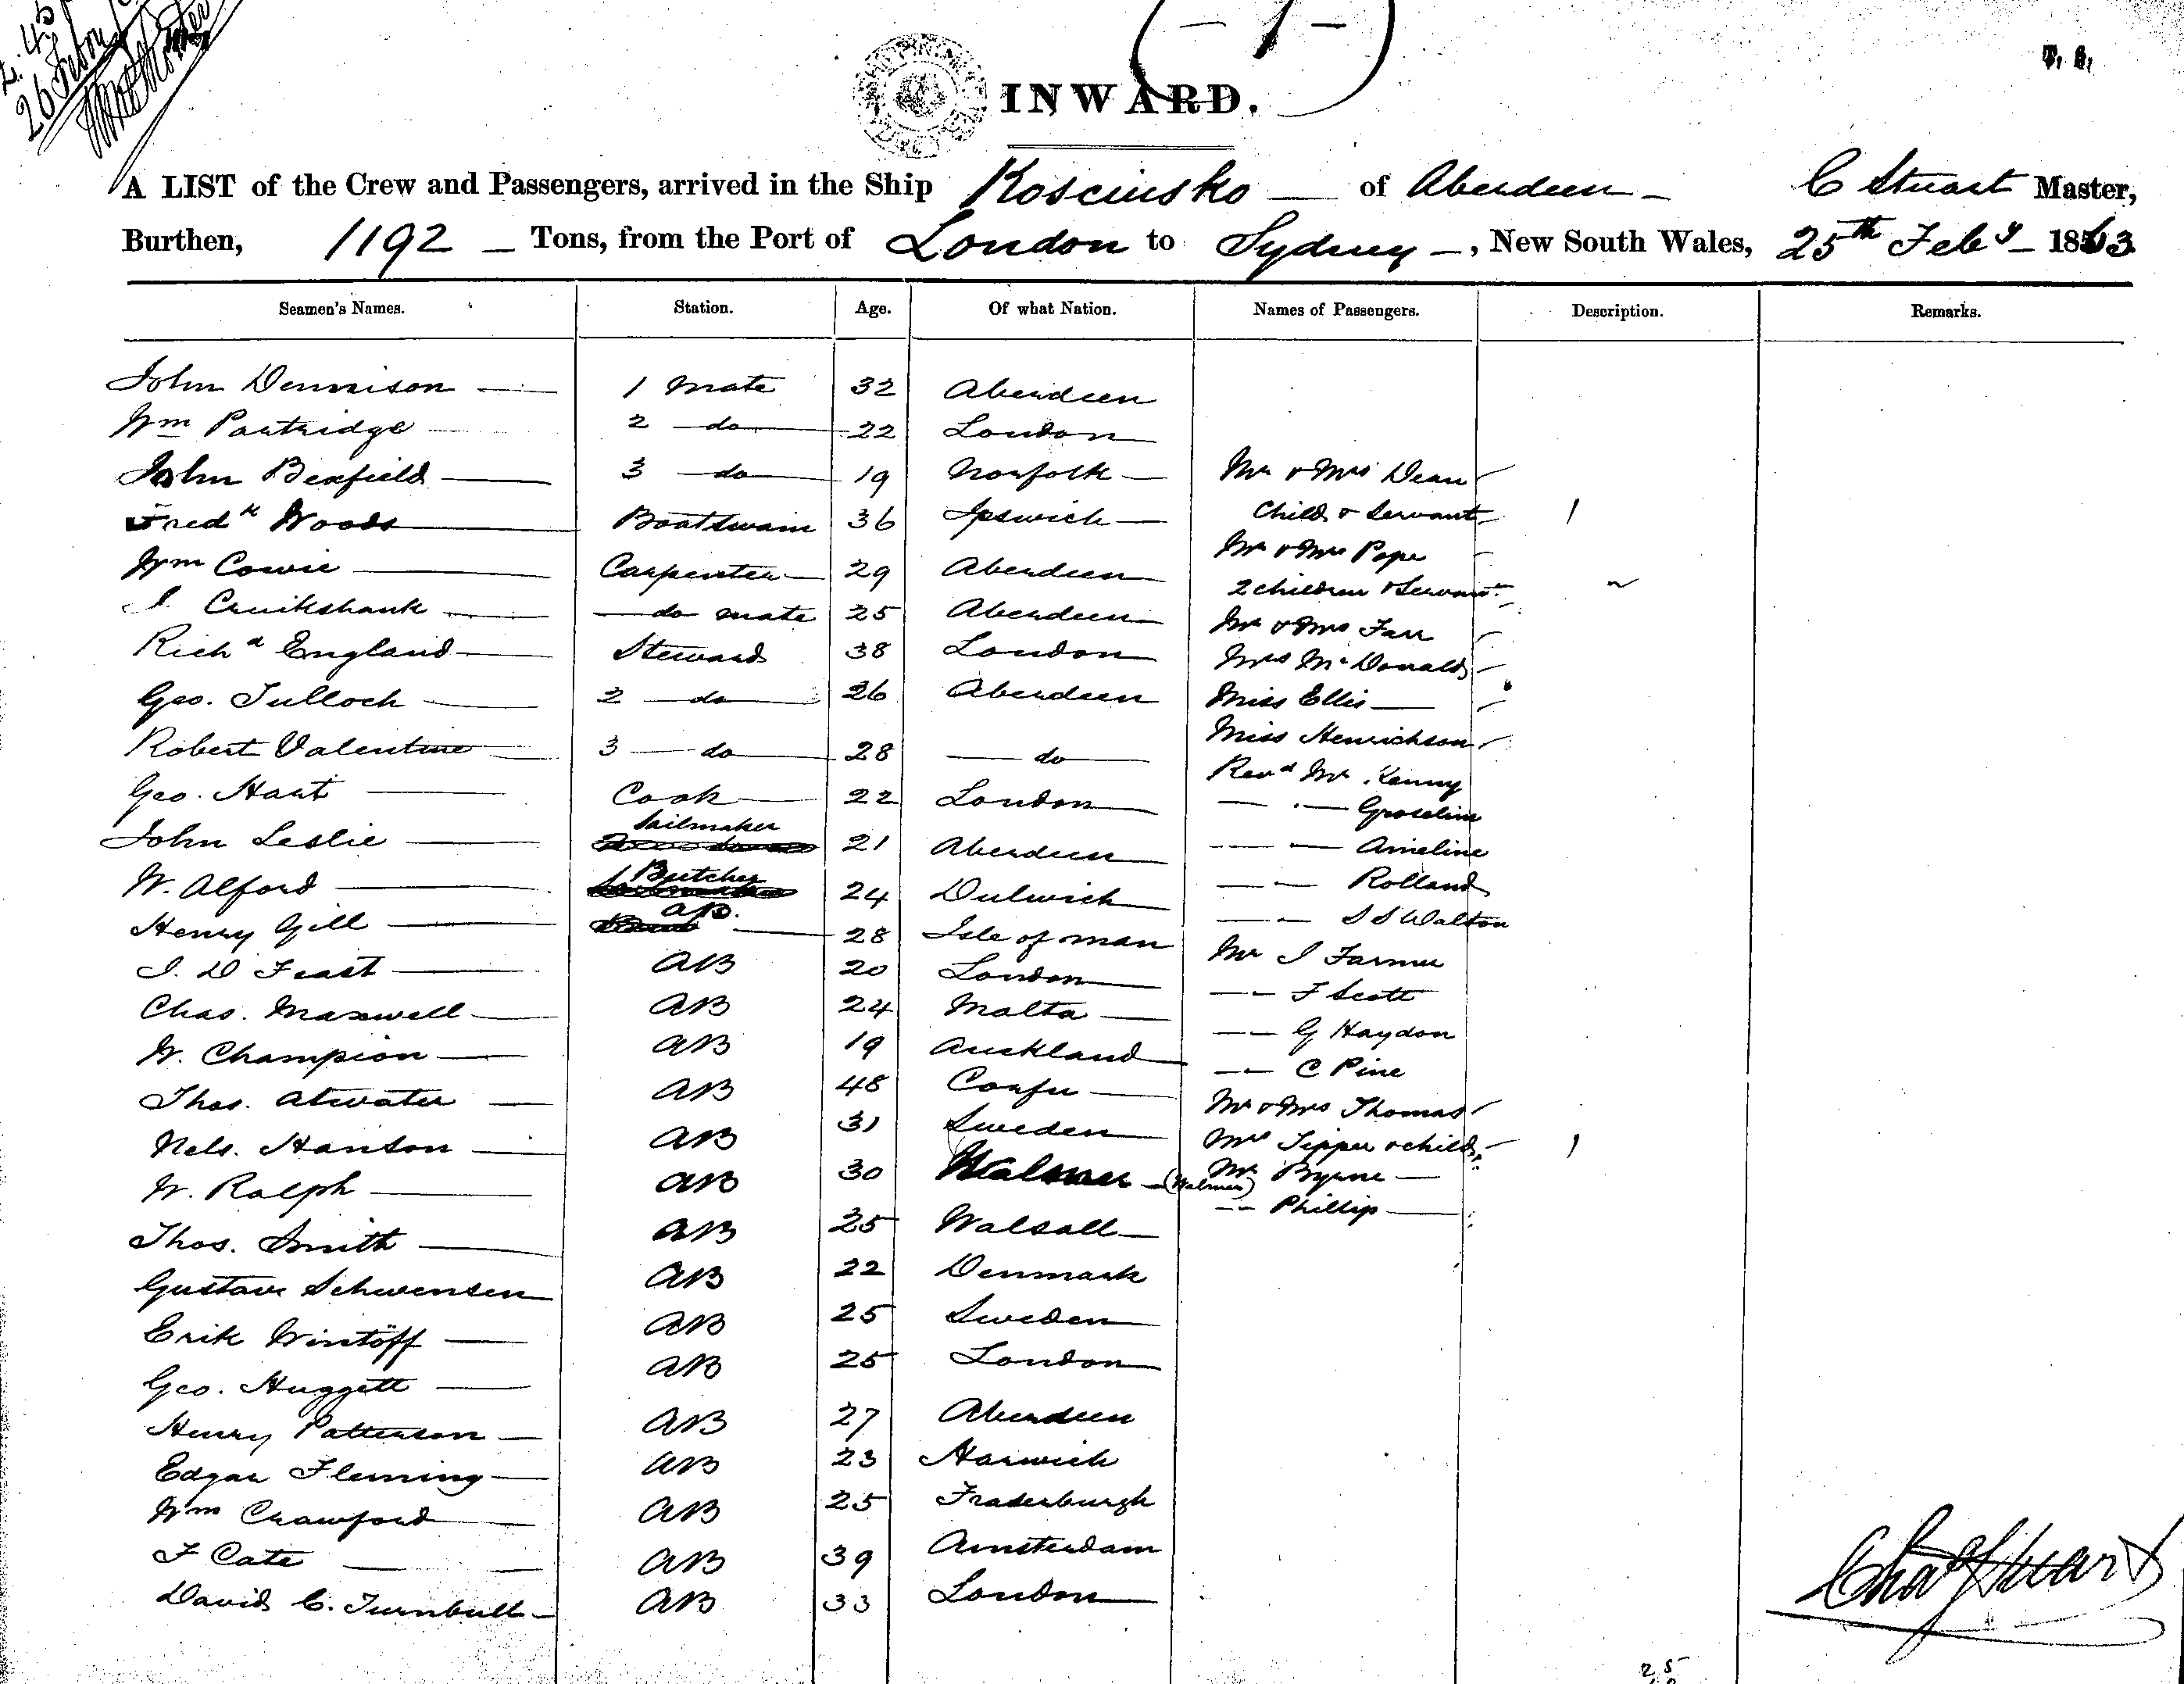 - 1 -
T. S.
INWARD.
A LIST of the Crew and Passengers, arrived in the Ship Kosciusko of Aberdeen C Stuart Master,
Burthen, 1192 Tons, from the Port of London to Sydney, New South Wales, 25th Feby 1863
Seamen's Names. Station. Age. Of what Nation. Names of Passengers. Description. Remarks.
John Dennison 1 Mate 32 Aberdeen
Wm Partridge 2 do 22 London
John Bexfield 3 do 19 Norfolk Mr & Mrs Dean
Fredk Woods Boatswain 36 Ipswich Child & Servant 1
Wm Cowie Carpenter 29 Aberdeen Mr & Mrs Pope
J. Cruikshank do mate 25 Aberdeen 2 children & Servant
Richd England Steward 38 London Mr & Mrs Farr
Mrs McDonald
Geo. Tulloch 2 do 26 Aberdeen Miss Ellis
Robert Valentine 3 do 28 do Miss Henrichson
Revd Mr Kenny
Geo. Hart Cook 22 London
John Leslie Sailmaker 21 Aberdeen Ameline
W. Alford Butcher 24 Dulwich Rolland
Henry Gill AB. 28 Isle of man S S Walton
J. D Feast AB 20 London Mr J Farmer
Chas. Maxwell AB 24 Malta F Scott
W. Champion AB 19 Auckland G Haydon
Thos. Atwater AB 48 Corfu C Pine
Nels. Hanson AB 31 Sweden Mr & Mrs Thomas
Mrs Tipper & child 1
W. Ralph AB 30 Walmer (Walmer) Mr Byrne
Thos. Smith AB 25 Walsall Phillip
Gustave Schwensen AB 22 Denmark
Erik Wintöff AB 25 Sweden
Geo. Huggett AB 25 London
Henry Patterson AB 27 Aberdeen
Edgar Fleming AB 23 Harwich
Wm Crawford AB 25 Fraserburgh
F Cate AB 39 Amsterdam
David C. Turnbull AB 33 London
Chas Stuart
25